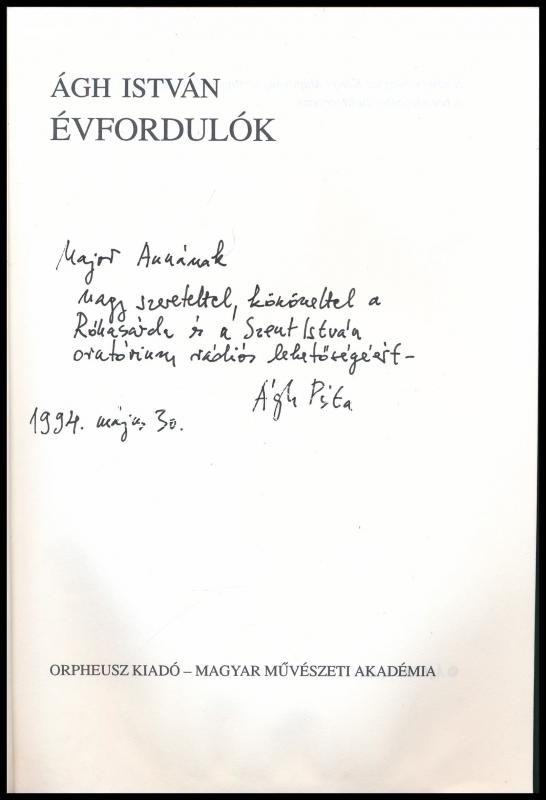 ÁGH ISTVÁN
ÉVFORDULÓK
Major Annának
nagy szeretettel, köszönettel a
Rókasárda és a Szent István
oratórium rádiós lehetőségéért –
Ágh Pista
1994. május 30.
ORPHEUSZ KIADÓ – MAGYAR MŰVÉSZETI AKADÉMIA